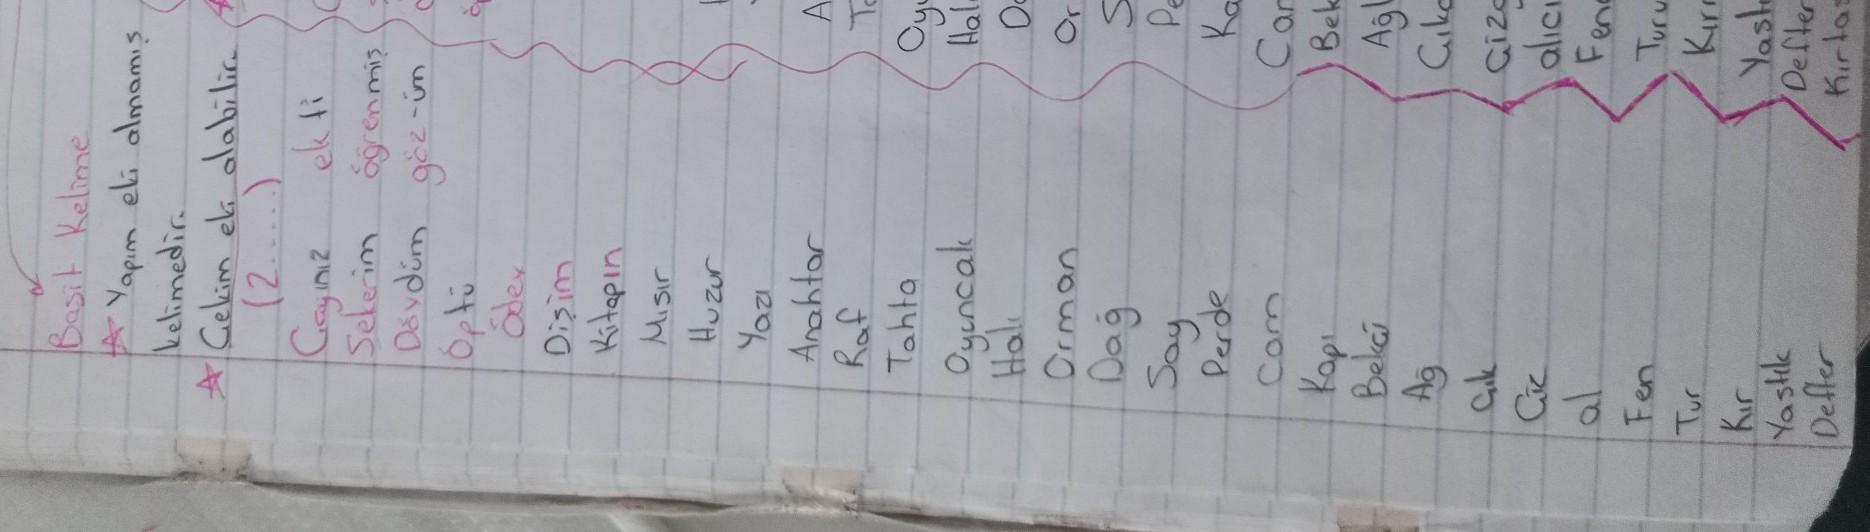 Basit Kelime
☆ Yapım eki almamış
kelimedir.
☆ Çekim eki alabilir.
(2.....)
Çayınız ekti
Şekerim öğrenmiş
Dövdüm göz-üm
Öptü
Öder
Dişim
Kitapın
Mısır
Huzur
Yazı
Anahtar
Raf
Tahta
Oyuncak
Halı
Orman
Dağ
Say
Perde
Cam
Kapı
Bekçi
Ağ
Çık
Çiz
al
Fen
Tur
Kır
Yastık
Defter
A
Oyu
Halı
Or
S
Pe
Ka
Cam
Bek
Ağl
Çıka
Çize
alıcı
Fen
Turu
Kır
Yastı
Defter
Kırta